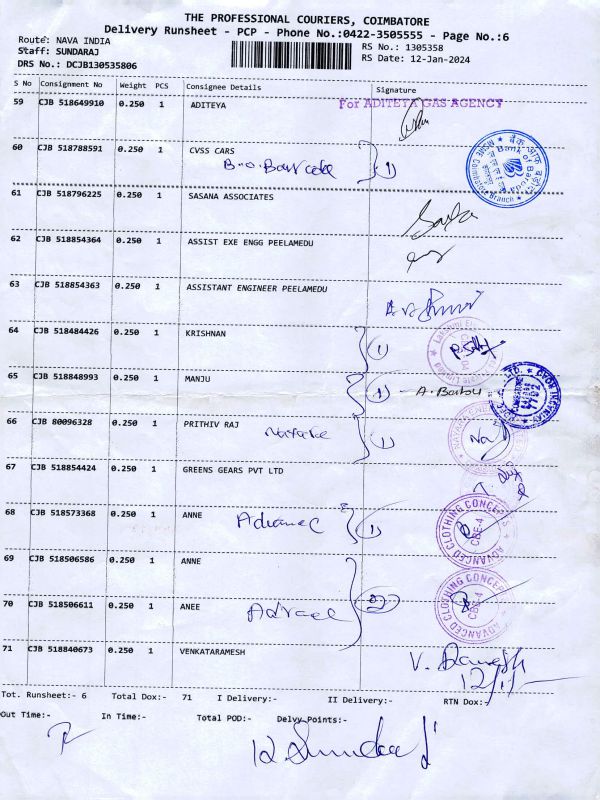 THE PROFESSIONAL COURIERS, COIMBATORE
Delivery Runsheet - PCP - Phone No.:0422-3505555 - Page No.:6
Route: NAVA INDIA
Staff: SUNDARAJ
DRS No.: DCJB130535806
RS No.: 1305358
RS Date: 12-Jan-2024
S No Consignment No Weight PCS Consignee Details Signature
59 CJB 518649910 0.250 1 ADITEYA For ADITEYA GAS AGENCY
60 CJB 518788591 0.250 1 CVSS CARS
(1)
Bank of Baroda
Branch
61 CJB 518796225 0.250 1 SASANA ASSOCIATES
62 CJB 518854364 0.250 1 ASSIST EXE ENGG PEELAMEDU
63 CJB 518854363 0.250 1 ASSISTANT ENGINEER PEELAMEDU
64 CJB 518484426 0.250 1 KRISHNAN (1)
65 CJB 518848993 0.250 1 MANJU (1)
66 CJB 80096328 0.250 1 PRITHIV RAJ (1)
67 CJB 518854424 0.250 1 GREENS GEARS PVT LTD
68 CJB 518573368 0.250 1 ANNE (1)
ADVANCED CLOTHING CONCEPTS
CBE-4
69 CJB 518506586 0.250 1 ANNE
70 CJB 518506611 0.250 1 ANEE (2)
ADVANCED CLOTHING CONCEPTS
CBE-4
71 CJB 518840673 0.250 1 VENKATARAMESH V. Ramesh
12/1/
Tot. Runsheet:- 6 Total Dox:- 71 I Delivery:- II Delivery:- RTN Dox:-
Out Time:- In Time:- Total POD:- Delvy Points:-